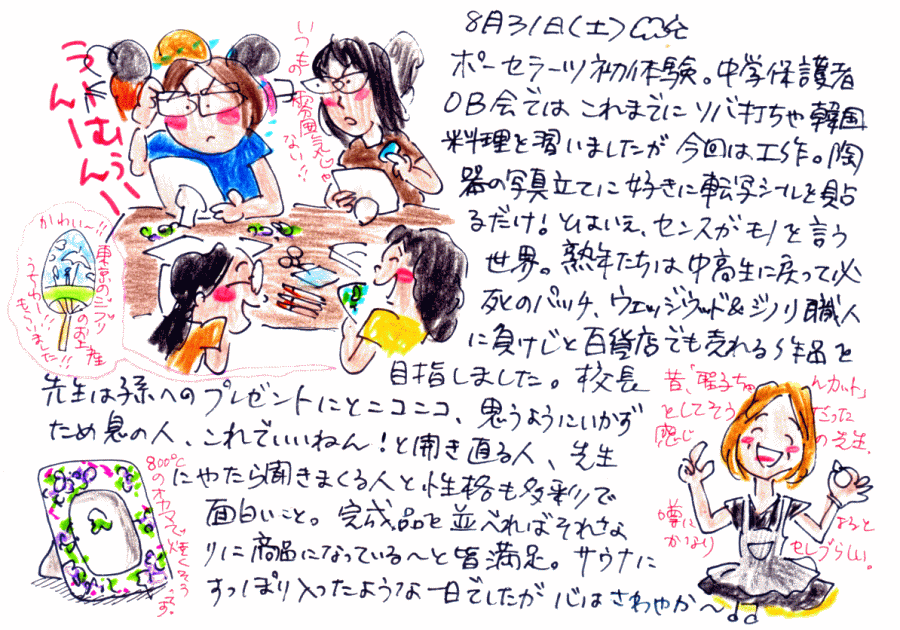 8月31日(土)
ポーセラーツ初体験。中学保護者
OB会では これまでに ソバ打ちや韓国
料理を習いましたが 今回は工作。陶
器の写真立てに好きに転写シールを貼
るだけ！とはいえ、センスがモノを言う
世界。熟年たちは中高生に戻って必
死のパッチ、ウェッジウッド&ジノリ職人
に負けじと百貨店でも売れる作品を
目指しました。校長
先生は孫へのプレゼントにとニコニコ、思うようにいかず
ため息の人、これでいいねん！と開き直る人、先生
にやたら聞きまくる人と性格も多彩で
面白いこと。完成品を並べればそれな
りに商品になっている〜と皆満足。サウナに
すっぽり入ったような一日でしたが心はさわやか〜
うーむぅぅ
んー んー
いつもの
雰囲気じゃ
ない!!
かわい〜!!
東京のジブリ
のお土産
うちわ
もらいました!!
800℃
のオカマで焼くそう
です
昔、「聖子ちゃんカット」
をしてそうだった
感じの先生。
噂によると
かなりセレブらしい。